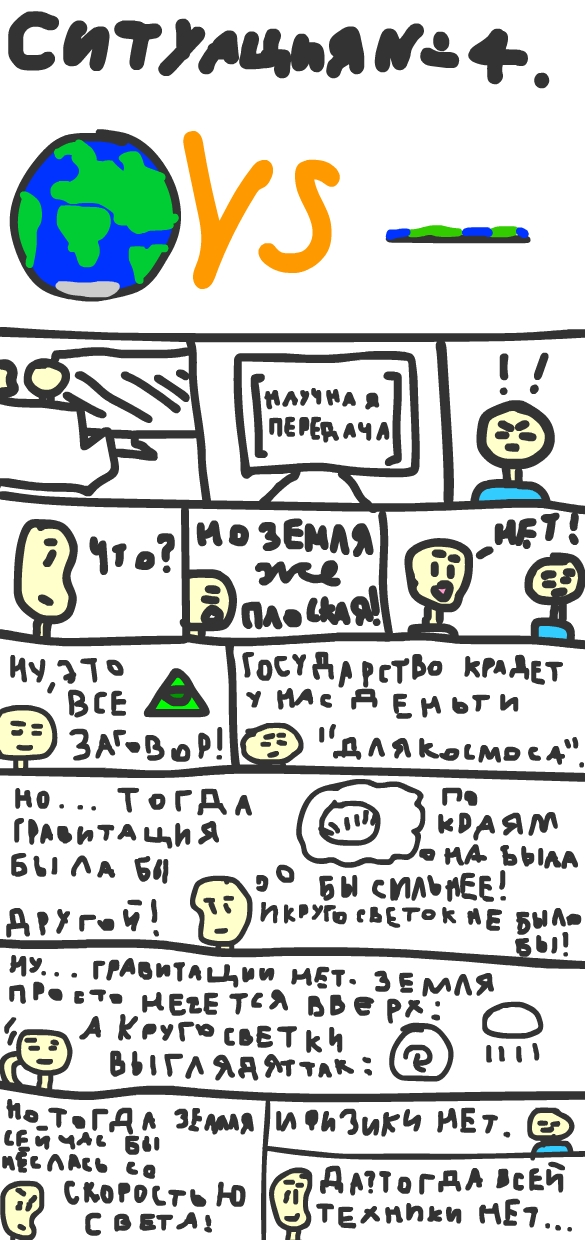 СИТУАЦИЯ №4.
VS
[НАУЧНАЯ
ПЕРЕДАЧА]
!!
ЧТО?
НО ЗЕМЛЯ
ЖЕ
ПЛОСКАЯ!
НЕТ!
НУ, ЭТО
ВСЕ
ЗАГОВОР!
ГОСУДАРСТВО КРАДЕТ
У НАС ДЕНЬГИ
"ДЛЯ КОСМОСА".
НО... ТОГДА
ГРАВИТАЦИЯ
БЫЛА БЫ
ДРУГОЙ!
ПО
КРАЯМ
ОНА БЫЛА
БЫ СИЛЬНЕЕ!
И КРУГОСВЕТОК НЕ БЫЛО
БЫ!
НУ... ГРАВИТАЦИИ НЕТ. ЗЕМЛЯ
ПРОСТО НЕСЕТСЯ ВВЕРХ:
А КРУГОСВЕТКИ
ВЫГЛЯДЯТ ТАК:
НО ТОГДА ЗЕМЛЯ
СЕЙЧАС БЫ
НЕСЛАСЬ СО
СКОРОСТЬЮ
СВЕТА!
И ФИЗИКИ НЕТ.
ДА? ТОГДА ВСЕЙ
ТЕХНИКИ НЕТ...